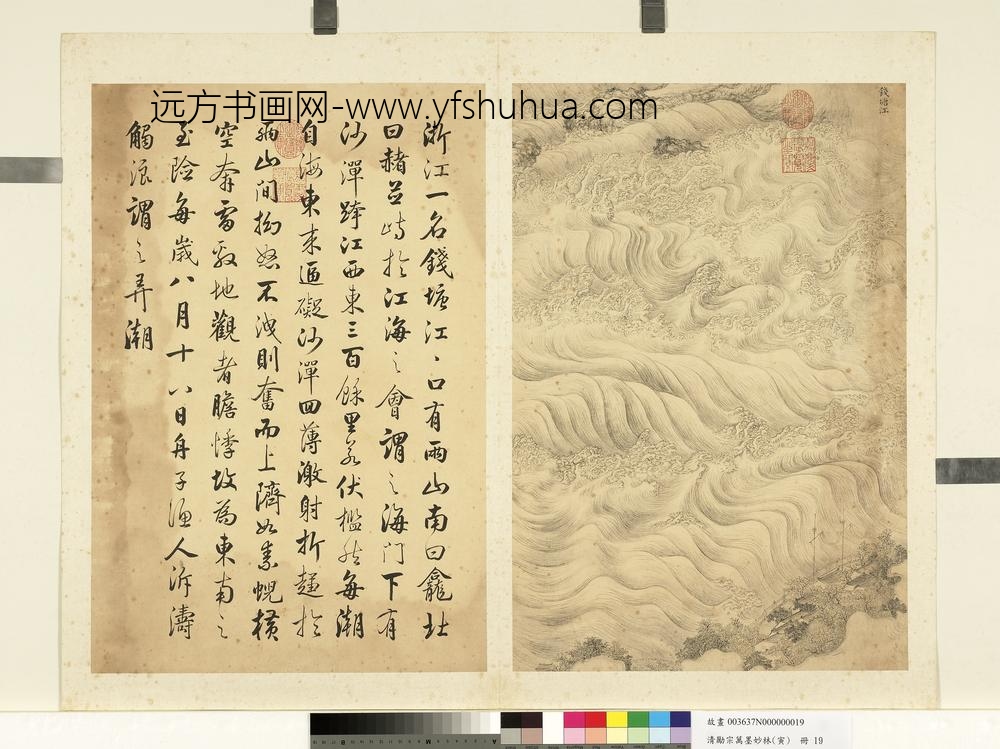 远方书画网-www.yfshuhua.com
錢塘江
浙江一名錢塘江、口有兩山南曰龕北
曰赭並峙於江海之會謂之海門下有
沙潬跨江西東三百餘里若伏檻然每潮
自海東來逼礙沙潬回薄激射折趨於
兩山間拗怒不洩則奮而上隮如素蜺橫
空奔雷殷地觀者膽悸故為東南之
至險每歲八月十八日舟子漁人泝濤
觸浪謂之弄潮
故畫 003637N000000019
清勵宗萬墨妙林(寅) 冊 19